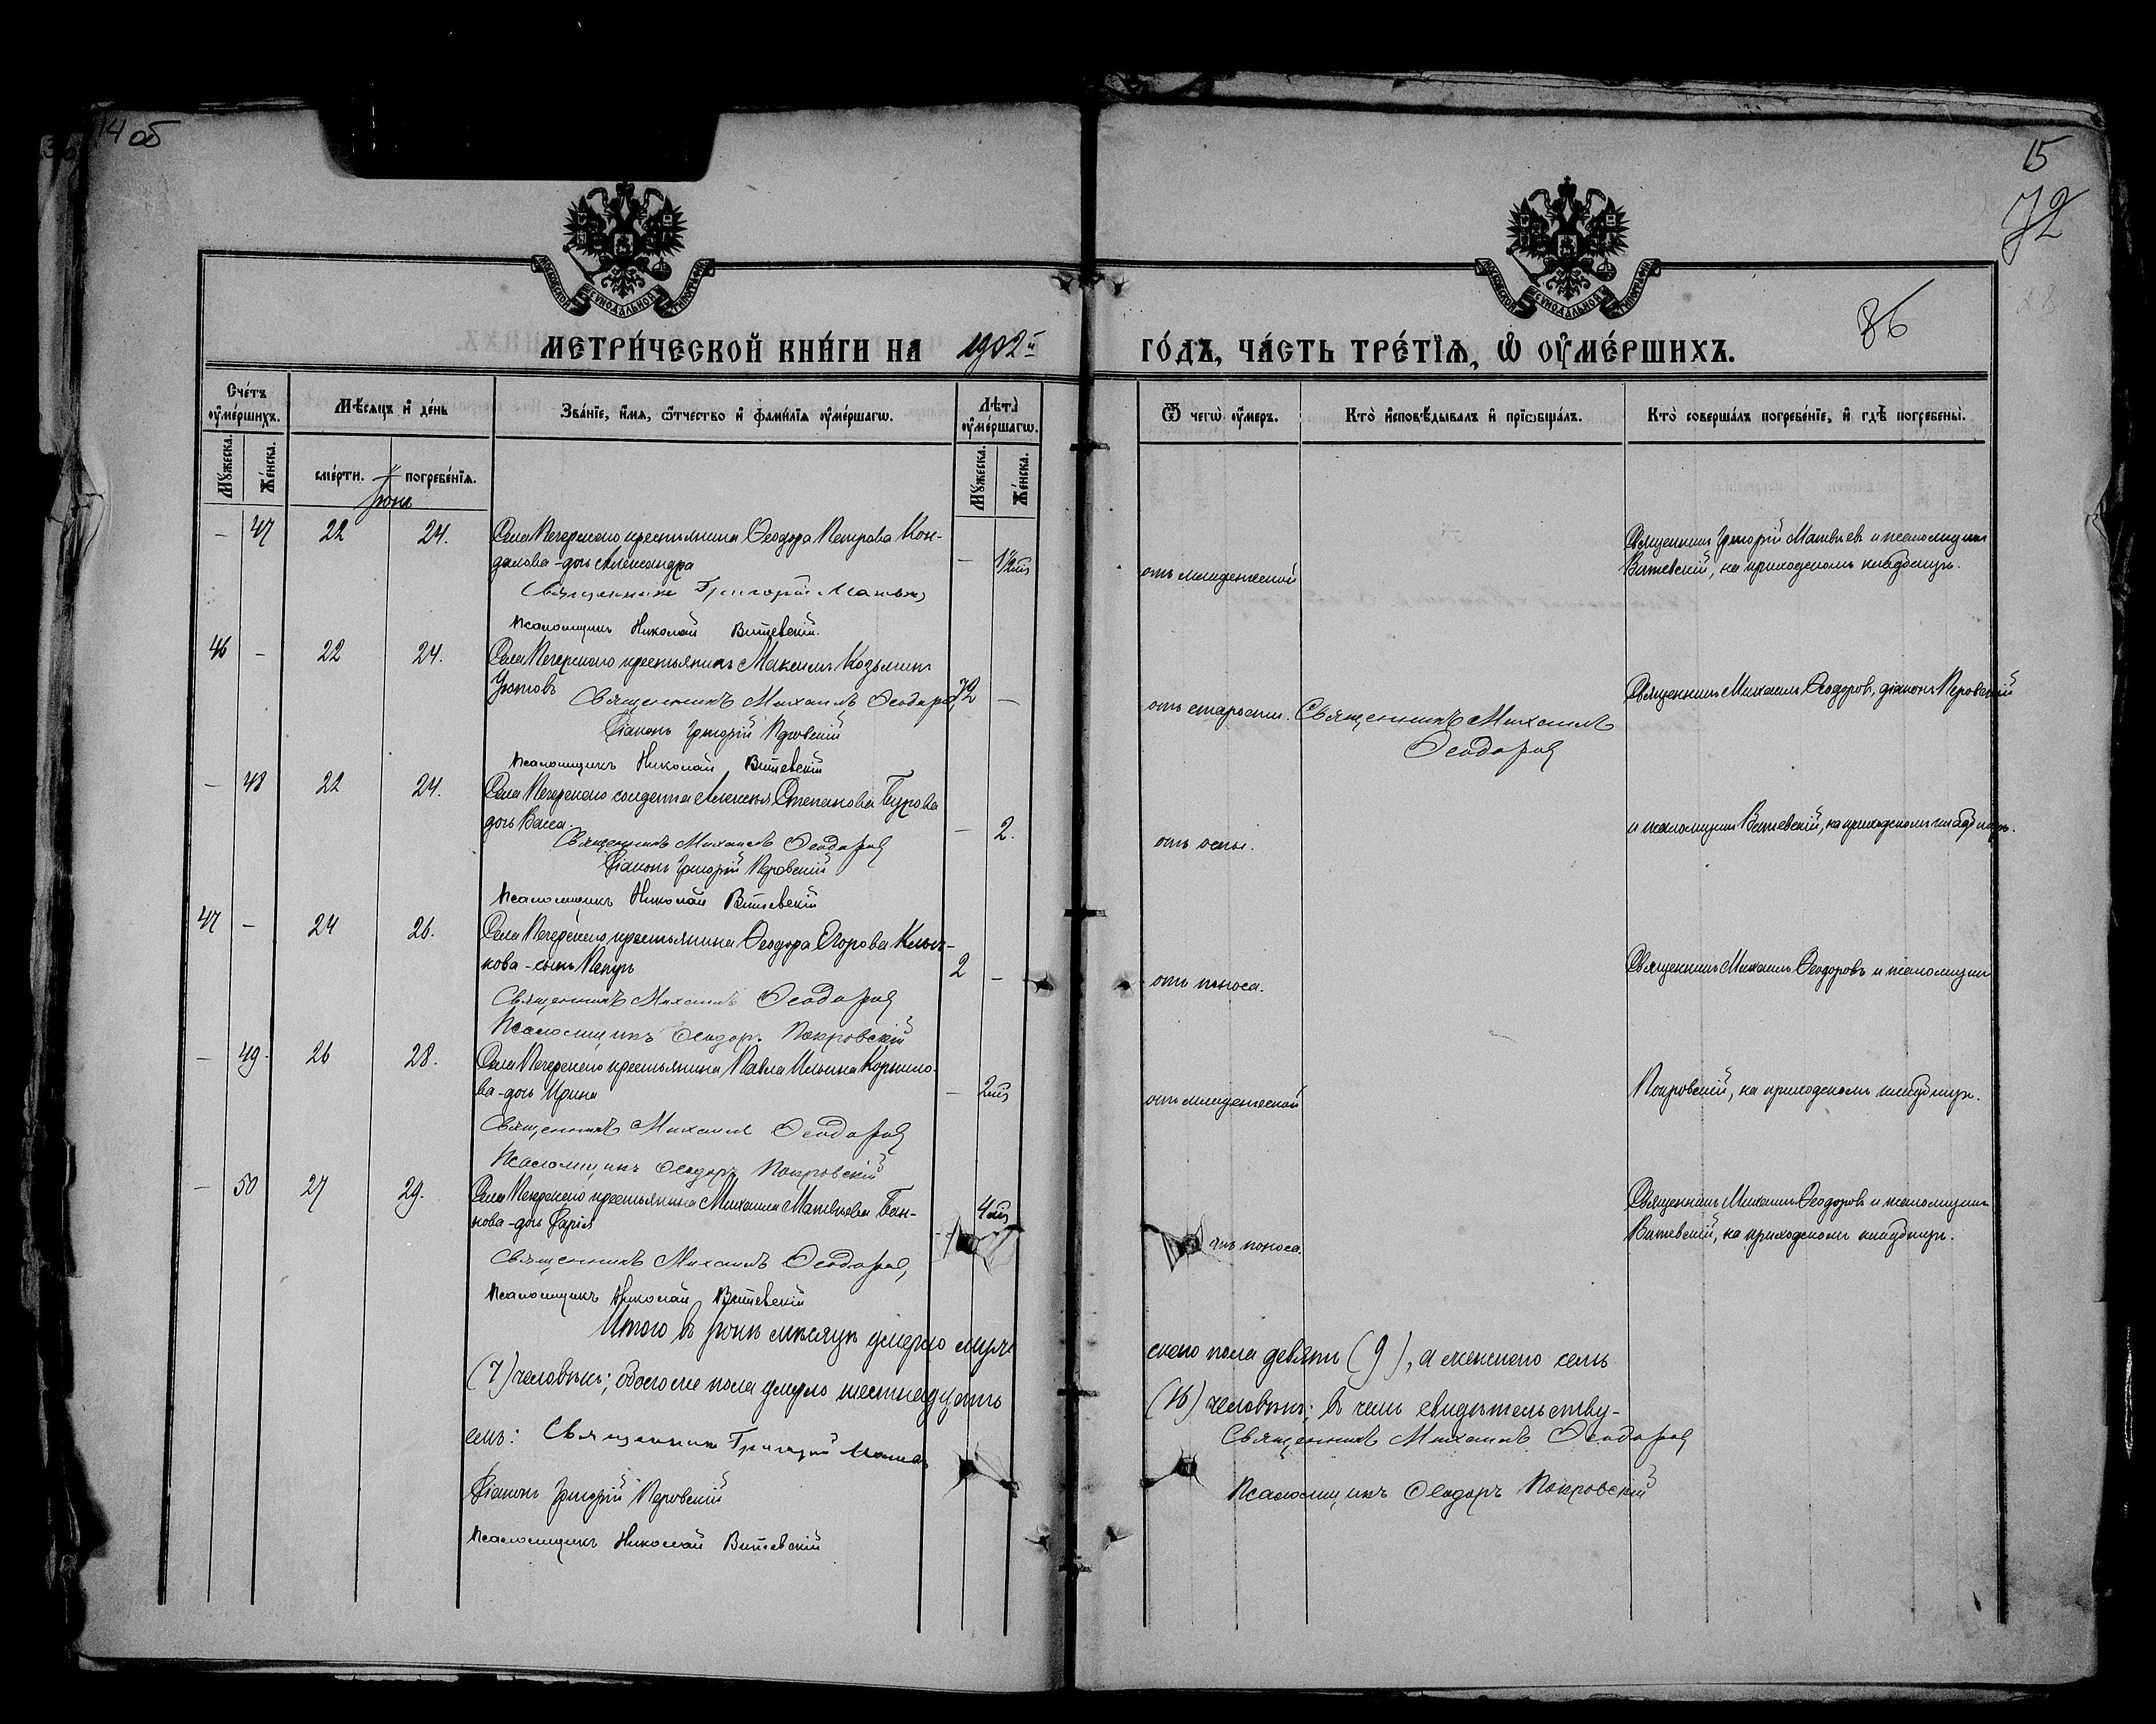 14 об
15
72
86
МОСКОВСКОЙ СѴНОДАЛЬНОЙ ТИПОГРАФІИ
МОСКОВСКОЙ СѴНОДАЛЬНОЙ ТИПОГРАФІИ
МЕТРИ́ЧЕСКОЙ КНИ́ГИ НА 1902й ГО́ДЪ, ЧА́СТЬ ТРЕ́ТІѦ, Ѡ҆ ОУ҆МЕ́РШИХЪ.
Сче́тъ оу҆ме́ршихъ.
Мѣ́сѧцъ и҆ де́нь
Зва́нїе, и҆́мѧ, ѻ҆́тчество и҆ фамі́лїѧ оу҆ме́ршагѡ.
Лѣ̀та оу҆ме́ршагѡ.
Ѿ чегѡ̀ оу҆́меръ.
Кто̀ и҆сповѣ́дывалъ и҆ прїѡбща́лъ.
Кто̀ соверша́лъ погребе́нїе, и҆ гдѣ̀ погребены̀.
Мꙋ́жеска.
Же́нска.
сме́рти.
погребе́нїѧ.
Мꙋ́жеска.
Же́нска.
Іюня
— 47 22 24. Села Печерскаго крестьянина Ѳеодора Петрова Кон-
далова - дочь Александра — 1½ мѣс
отъ младенческой
Священникъ Григорій Матвѣевъ и псаломщикъ
Витевскій, на приходскомъ кладбищѣ.
Священникъ Григорій Матвѣевъ
Псаломщикъ Николай Витевскій.
46 — 22 24. Села Печерскаго крестьянинъ Максимъ Козьминъ
Утовъ 72 —
Священникъ Михаилъ Ѳеодоровъ
Діаконъ Григорій Перовскій
Псаломщикъ Николай Витевскій
отъ старости. Священникъ Михаилъ
Ѳеодоровъ
Священникъ Михаилъ Ѳеодоровъ, діаконъ Перовскій
— 48 22 24. Села Печерскаго солдата Алексѣя Степанова Бурова
дочь Васса. — 2.
Священникъ Михаилъ Ѳеодоровъ
Діаконъ Григорій Перовскій
Псаломщикъ Николай Витевскій
отъ оспы.
и псаломщикъ Витевскій, на приходскомъ кладбищѣ.
47 — 24 26. Села Печерскаго крестьянина Ѳеодора Егорова Клыч-
кова - сынъ Петръ 2 —
Священникъ Михаилъ Ѳеодоровъ
Псаломщикъ Ѳеодоръ Покровскій
отъ поноса.
Священникъ Михаилъ Ѳеодоровъ и псаломщикъ
— 49. 26 28. Села Печерскаго крестьянина Павла Ильина Корнило-
ва - дочь Ирина — 2 мѣс
Священникъ Михаилъ Ѳеодоровъ
Псаломщикъ Ѳеодоръ Покровскій
отъ младенческой
Покровскій, на приходскомъ кладбищѣ.
— 50 27 29. Села Печерскаго крестьянина Михаила Матвѣева Бан-
нова - дочь Дарія — 4 мѣс
Священникъ Михаилъ Ѳеодоровъ
Псаломщикъ Николай Витевскій
отъ поноса.
Священникъ Михаилъ Ѳеодоровъ и псаломщикъ
Витевскій, на приходскомъ кладбищѣ.
Итого въ іюнѣ мѣсяцѣ умерло муже скаго пола девять (9), а женскаго семь
(7) человѣкъ; обоего же пола умерло шестнадцать (16) человѣкъ; въ чемъ свидѣтельству-
емъ: Священникъ Григорій Матвѣевъ
Священникъ Михаилъ Ѳеодоровъ
Діаконъ Григорій Перовскій
Псаломщикъ Ѳеодоръ Покровскій
Псаломщикъ Николай Витевскій